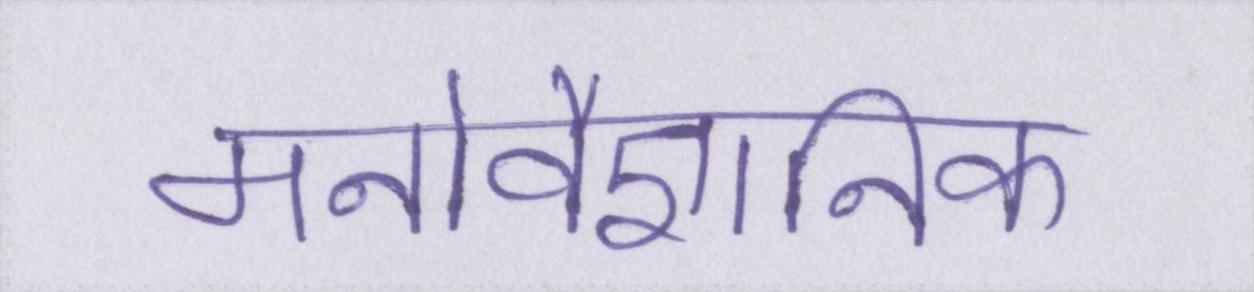 मनोवैज्ञानिक